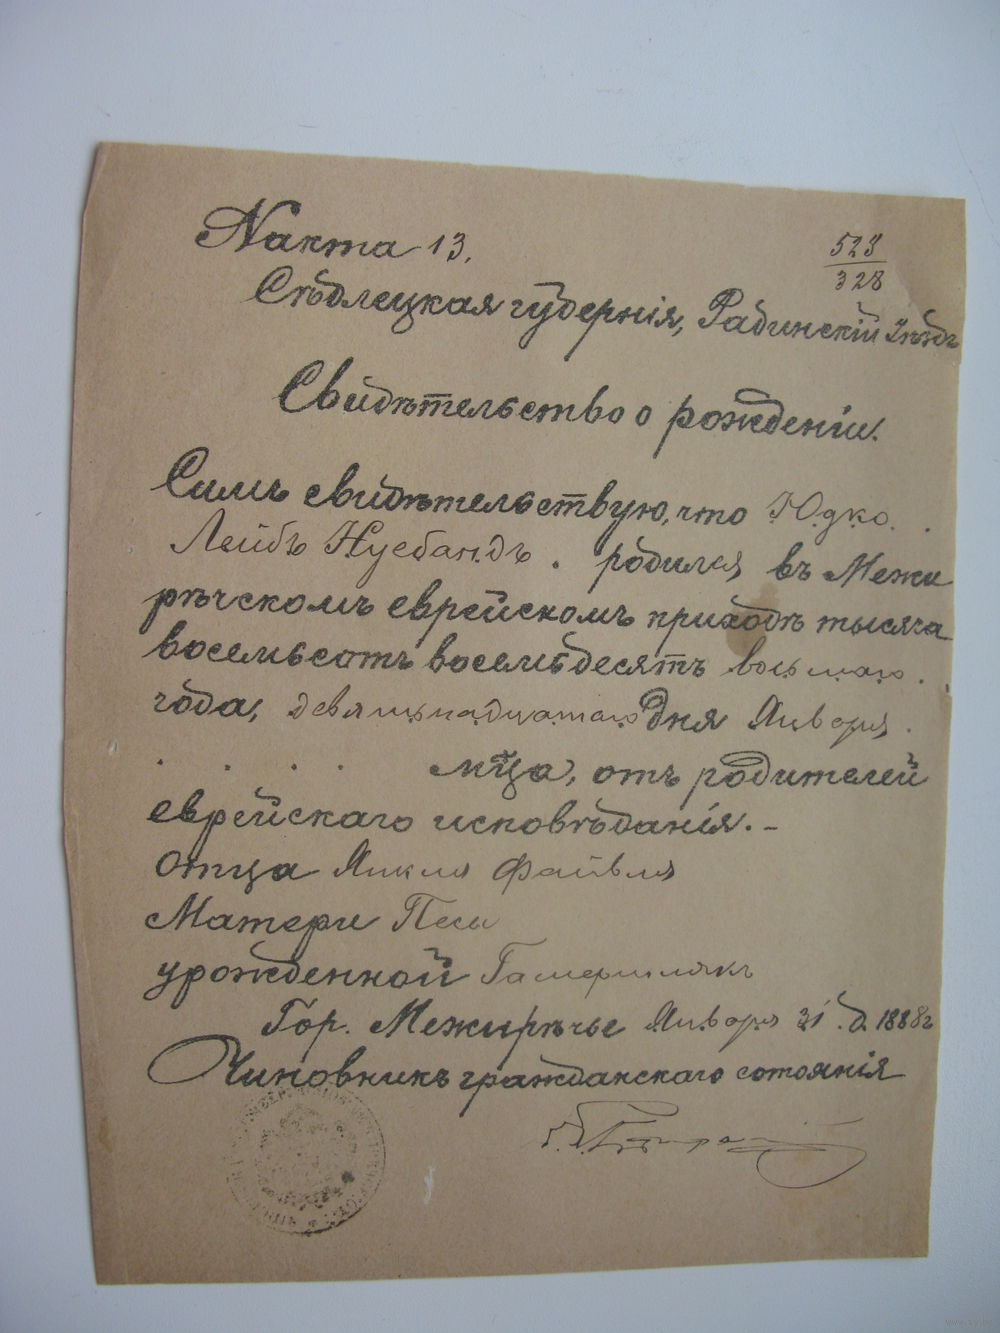 № акта 13.
528
328
Сѣдлецкая губернія, Радинскій Уѣздъ
Свидѣтельство о рожденіи.
Симъ свидѣтельствую, что Юдко
Лейбъ Нусбандъ. родился въ Межи
рѣчскомъ еврейскомъ приходѣ тысяча
восемьсотъ восемьдесятъ восьмаго
года, девятьнадцатаго дня Января
мца, отъ родителей
еврейскаго исповѣданія.-
Отца Янкля Файвля
Матери Песы
урожденной
Гор. Межирѣчье Января 31 д. 1888г
Чиновникъ гражданскаго сотоянія